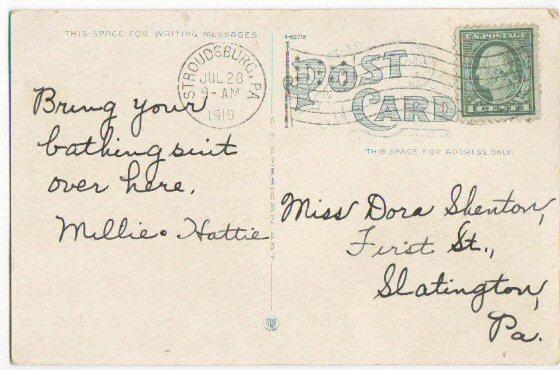 THIS SPACE FOR WRITING MESSAGES.
STROUDSBURG, PA
JUL 28
9-AM
1919
POST
CARD
U.S. POSTAGE
1 CENT 1
THIS SPACE FOR ADDRESS ONLY.
Bring your
bathing suit
over here.
Millie & Hattie
Miss Dora Shenton,
First St.,
Slatington,
Pa.